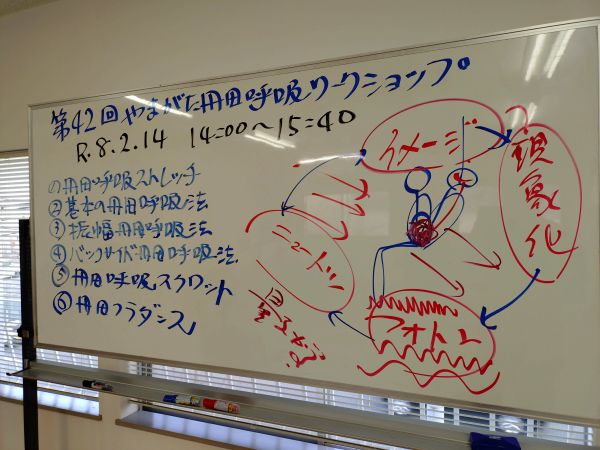 第42回やまがた丹田呼吸ワークショップ。
R.8.2.14 14=00～15=40
①丹田呼吸ストレッチ
②基本の丹田呼吸法
③振幅丹田呼吸法
④バックサイド丹田呼吸法.
⑤丹田呼吸スクワット
⑥丹田フラダンス
イメージ
現象化
ニュートン
フォトン